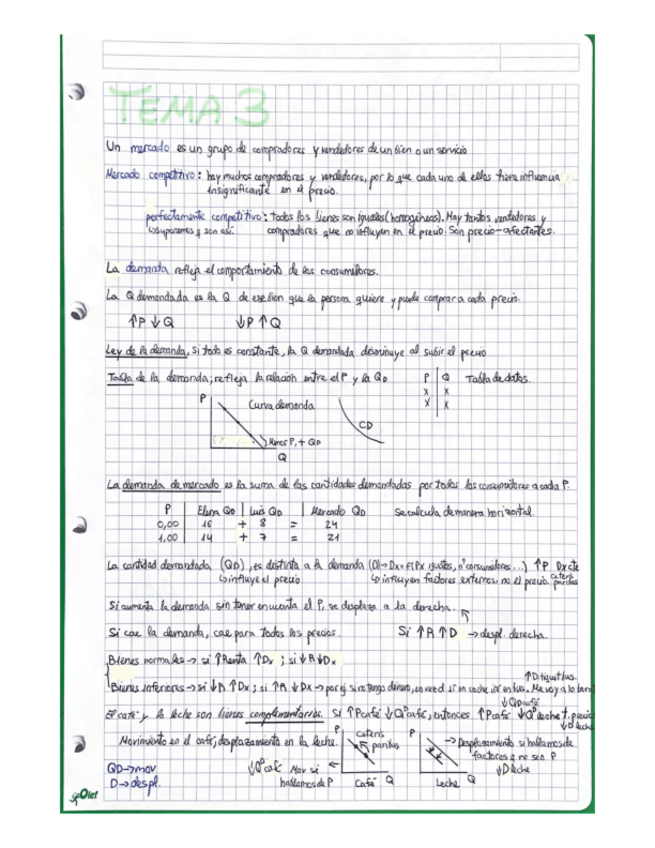 TEMA 3
Un mercado es un grupo de compradores y vendedores de un bien o un servicio
Mercado competitivo: hay muchos compradores y vendedores, por lo que cada uno de ellos tiene influencia
insignificante en el precio.
perfectamente competitivo: todos los bienes son iguales (homogéneos). Hay tantos vendedores y
↳suponemos q son así. compradores que no influyen en el precio. Son precio-afectantes.
La demanda refleja el comportamiento de los consumidores.
La Q demandada es la Q de ese bien que la persona quiere y puede comprar a cada precio.
↑P ↓Q ↓P ↑Q
Ley de la demanda, si todo es constante, la Q demandada disminuye al subir el precio
Tabla de la demanda; refleja la relación entre el P y la QD
P Q Tabla de datos.
X X
X X
P Curva demanda
CD
Menor P, + QD
Q
La demanda de mercado es la suma de las cantidades demandadas por todos los consumidores a cada P.
P Elena QD Luis QD Mercado QD Se calcula de manera horizontal.
0,00 16 + 8 = 24
1,00 14 + 7 = 21
La cantidad demandada (QD), es distinta a la demanda (D)→Dx=F(Px, gustos, nº consumidores...) ↑P Dx cte
↳influye el precio ↳influyen factores externos, no el precio. caeteris paribus
Si aumenta la demanda sin tener en cuenta el P, se desplaza a la derecha.
Si cae la demanda, cae para todos los precios. Si ↑R ↑D → despl. derecha.
Bienes normales → si ↑Renta ↑Dx ; si ↓R ↓Dx
↑D tiquet bus
Bienes inferiores → si ↓R ↑Dx ; si ↑R ↓Dx → por ej. si no tengo dinero, en vez d ir en coche iré en bus. Me voy a lo bara
↓QD café
El café y la leche son bienes complementarios. Si ↑Pcafé ↓Qº café, entonces ↑Pcafé ↓Qº leche
↓D leche
Movimiento en el café, desplazamiento en la leche.
P caeteris paribus
P → Desplazamiento si hablamos de
factores q no sean P
↓D leche
QD→mov
D→despl.
↓Qº café Mov si
hablamos de P
Café Q
Leche Q
Oxford